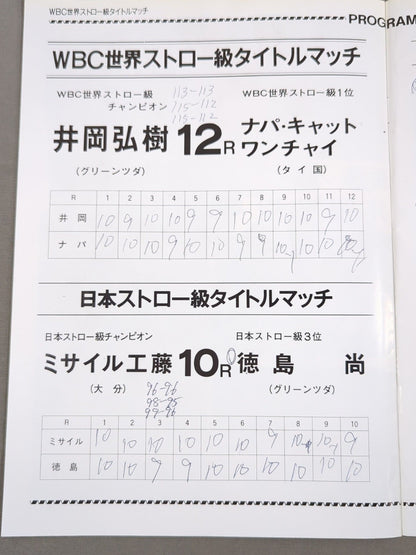 WBC世界ストロー級タイトルマッチ
PROGRAM
WBC世界ストロー級タイトルマッチ
WBC世界ストロー級
チャンピオン
113-113
115-112
115-112
WBC世界ストロー級1位
井岡弘樹 12R ナパ・キャット
ワンチャイ
(グリーンツダ)
(タイ国)
R 1 2 3 4 5 6 7 8 9 10 11 12
井岡 10 9 10 10 9 9 10 10 10 10 9 10
ナパ 10 10 10 9 10 10 9 9 10 10 10
日本ストロー級タイトルマッチ
日本ストロー級チャンピオン
日本ストロー級3位
ミサイル工藤 10R 徳島 尚
(大分)
96-96
98-95
99-96
(グリーンツダ)
R 1 2 3 4 5 6 7 8 9 10
ミサイル 10 10 10 10 10 10 9 10 10 9
徳島 10 10 9 9 10 10 10 10 10 10